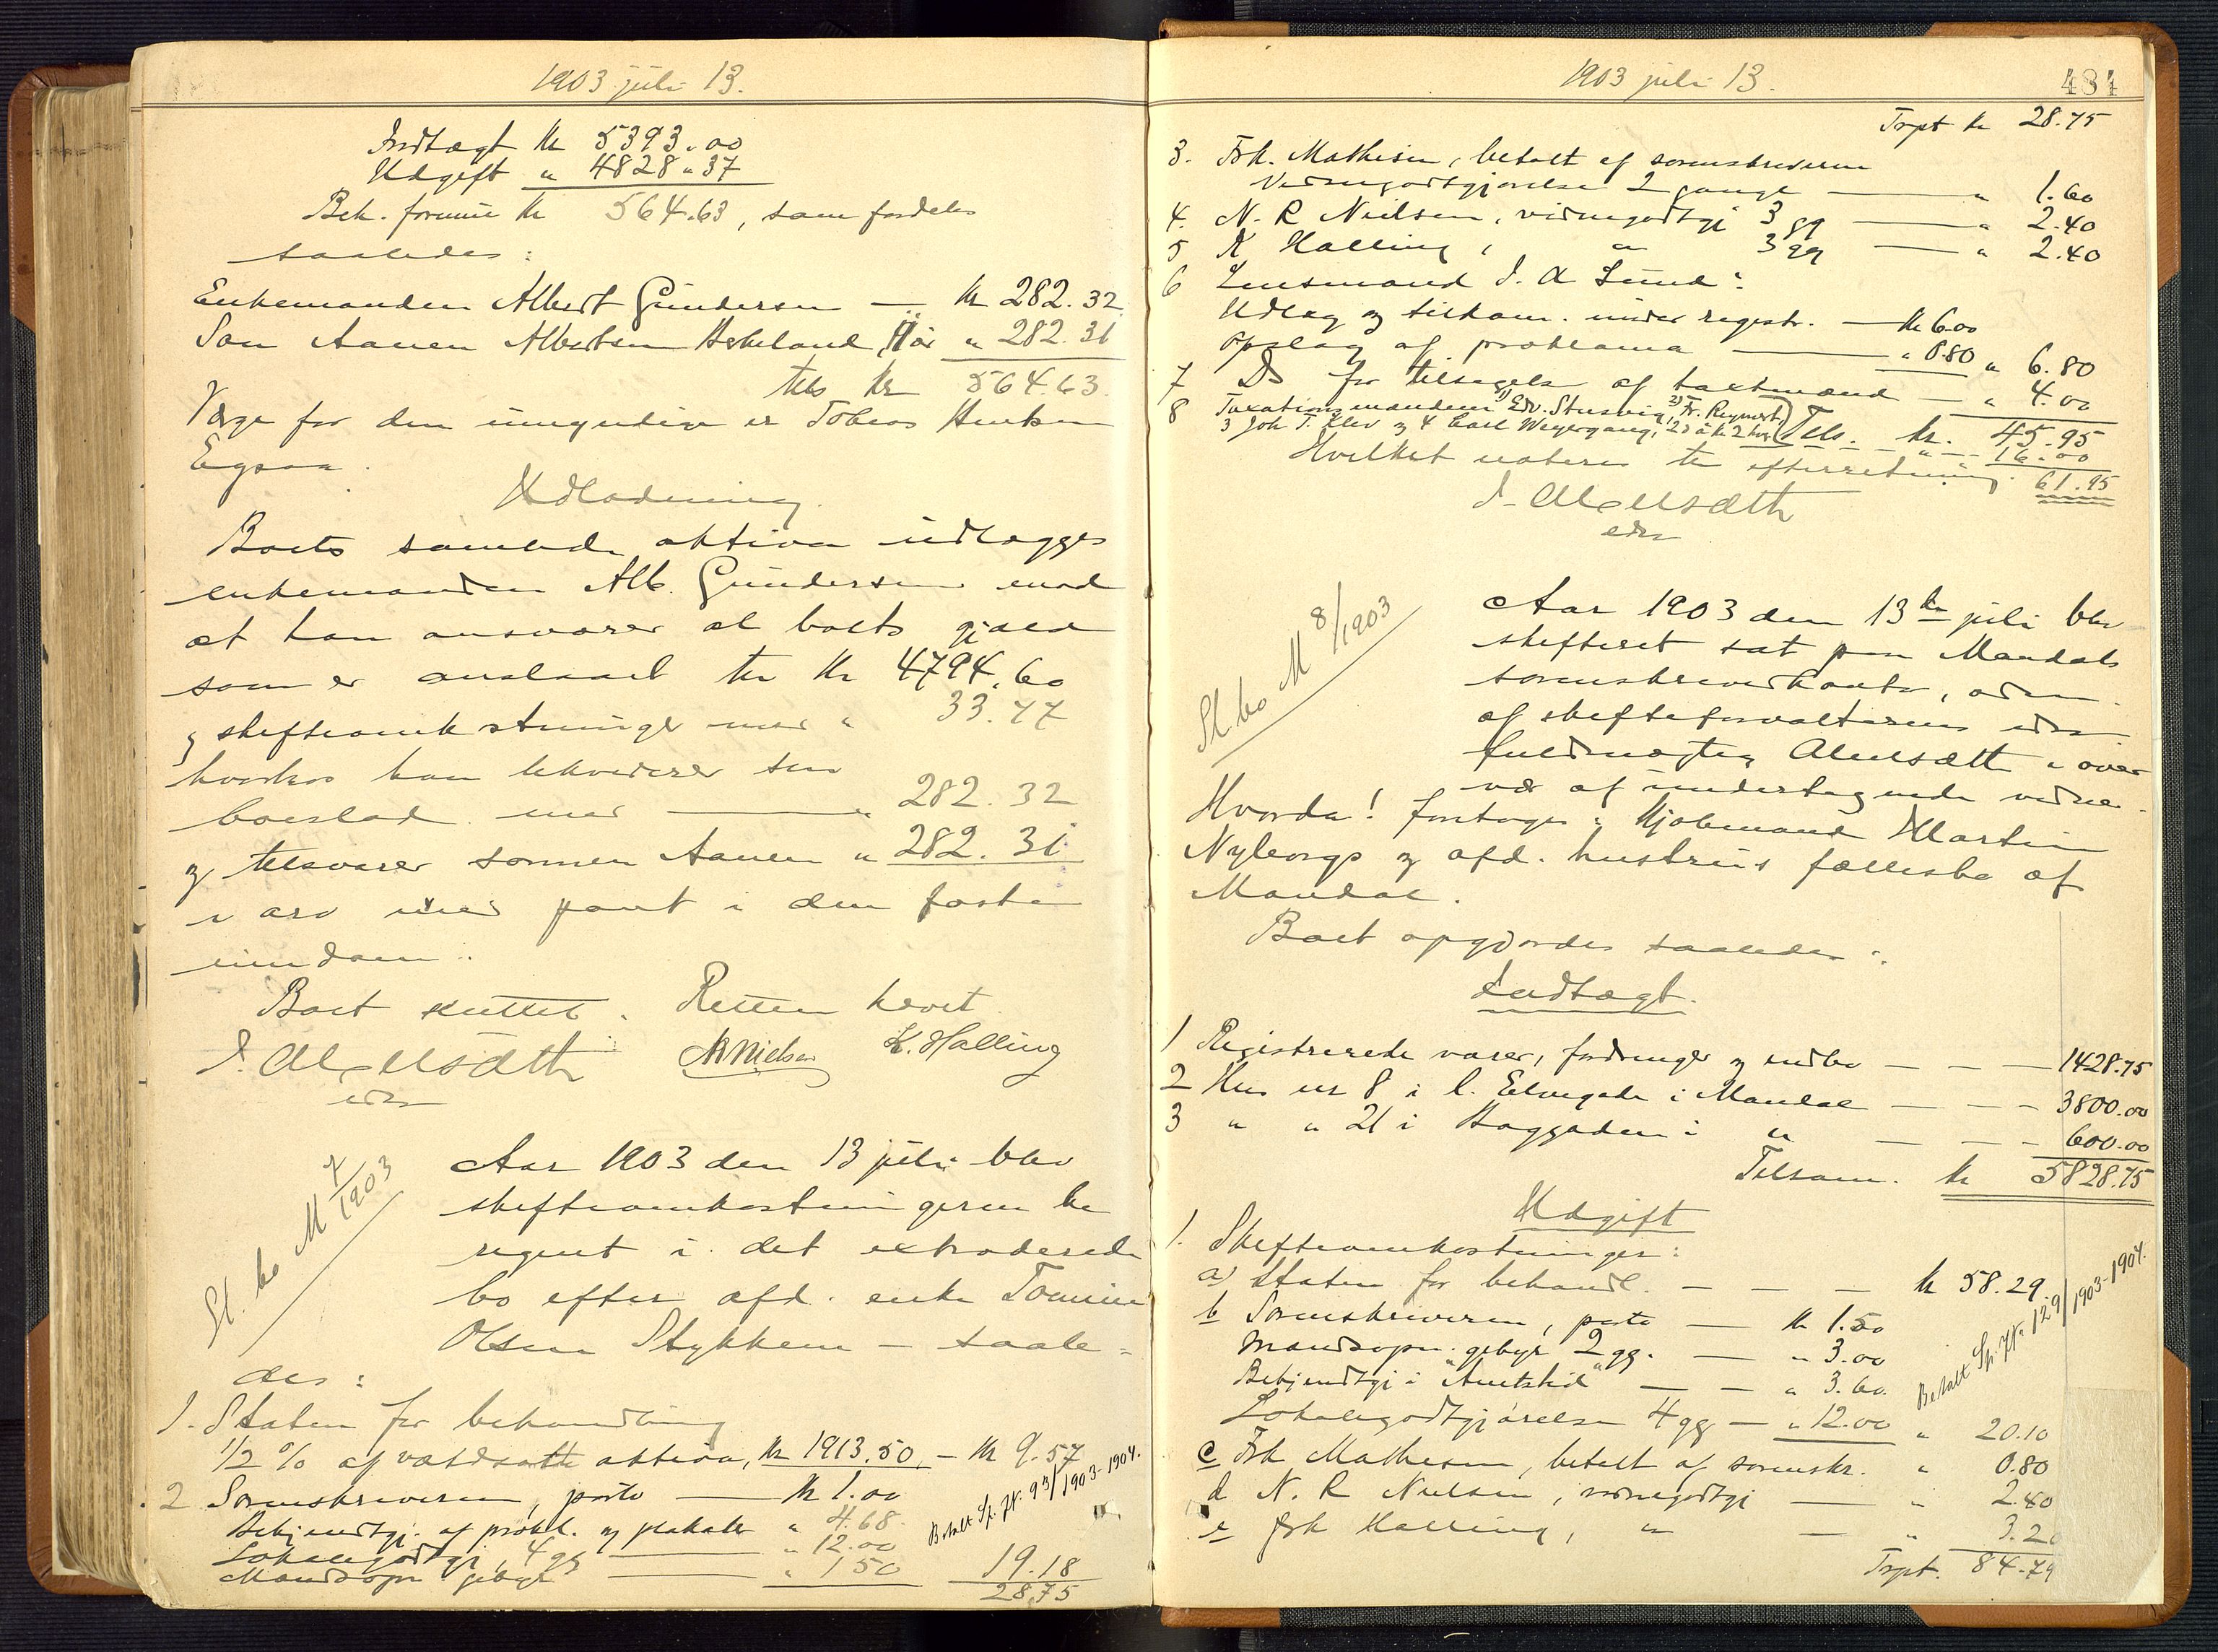 1903 juli 13.
Indtægt kr 5393.00
Udgift " 4828"37
Beh. formue kr 564.63, som fordeles
saaledes:
Enkemanden Albert Gundersen — kr 282.32
Søn Aanen Albertsen Hesteland, " 282.31
tils kr 564.63.
Værge for den umyndige er Tobias
Egsaa.
Udlodning.
Boets samlede aktiva udlægges
enkemanden Alb. Gundersen mod
at han ansvarer al boets gjæld
som er anslaaet til kr 4794.60
og skifteomkostninger med " 33.77
hvorhos han likviderer sin
boeslod med — " 282.32
og tilsvarer sønnen Aanen " 282.31
i arv med pant i den faste
eiendom.
Boet sluttet. Retten hævet
NRNielsen K. Halling
edsv
St. bo M 7/1903
Aar 1903 den 13 juli blev
skifteomkostningerne be
regnet i det extraderede
bo efter afd. enke Tomine
Olsen Stykkene — saale=
des:
1. Staten for behandling
1/2 % af værdsatte aktiva, kr 1913.50. — kr 9.57
2 Sorenskriveren, porto — kr 1.00
Bekjendtgj. af prokl. og plakater " 4.68
Lokalegodtgj, 4 gg — " 12.00
Mandsopn gebyr — " 1.50 19.18
28.75
Betalt Sp. J.N. 93/1903-1904.
1903 juli 13.
484
Trpt kr 28.75
3. Frk. Mathisen, betalt af sorenskriveren
Vidnegodtgjørelse 2 gange — " 1.60
4. N. R Nielsen, vidnegodtgj 3 gg — " 2.40
5 K Halling, " 3 gg — " 2.40
6 Lensmand J. A Lund:
Udlæg og tilkom. under registr. — kr 6.00
Opslag af proklama — " 0.80 " 6.80
7 Do for tilsigelse af taxtmænd — " 4.00
8 Taxationsmændene 1) Edv. Stusvig, 2) Fr. Reymert,
3 Joh T. Klev og 4 Carl Weyergang, 2 d à kr 2 hver) Tils. kr. 45.95
" 16.00
Hvilket noteres til efterretning. 61.95
edsv
St. bo M 8/1903
Aar 1903 den 13de juli blev
skifteret sat paa Mandals
sorenskriverkontor, adm.
af skifteforvalterens edsv
fuldmægtig i over
vær af undertegnede vidner.
Hvorda! foretoges: Kjøbmand Martin
Nyborgs og afd. hustrus fællesbo af
Mandal.
Boet opgjordes saaledes:
Indtægt.
1 Registrerede varer, fordringer og indbo — — — 1428.75
2 Hus nr 8 i l. Elvegade i Mandal — — — 3800.00
3 " " 21 i Haggaden i " — — — 600.00
Tilsam. kr 5828.75
Udgift
1. Skifteomkostninger:
a) Staten for behandl. — — — kr 58.29.
b Sorenskriveren, porto — kr 1.50
Mandsopn. gebyr 2 gg. — " 3.00
Bekjendtgj i "Amtstid" — — " 3.60
Lokalegodtgjørelse 4 gg — " 12.00 " 20.10
Betalt Sp. J.N. 129/1903-1904.
c Frk Mathisen, betalt af sorenskr. " 0.80
d N. R Nielsen, vidnegodtgj — " 2.40
e Frk Halling, " — " 3.20
Trpt. 84.79